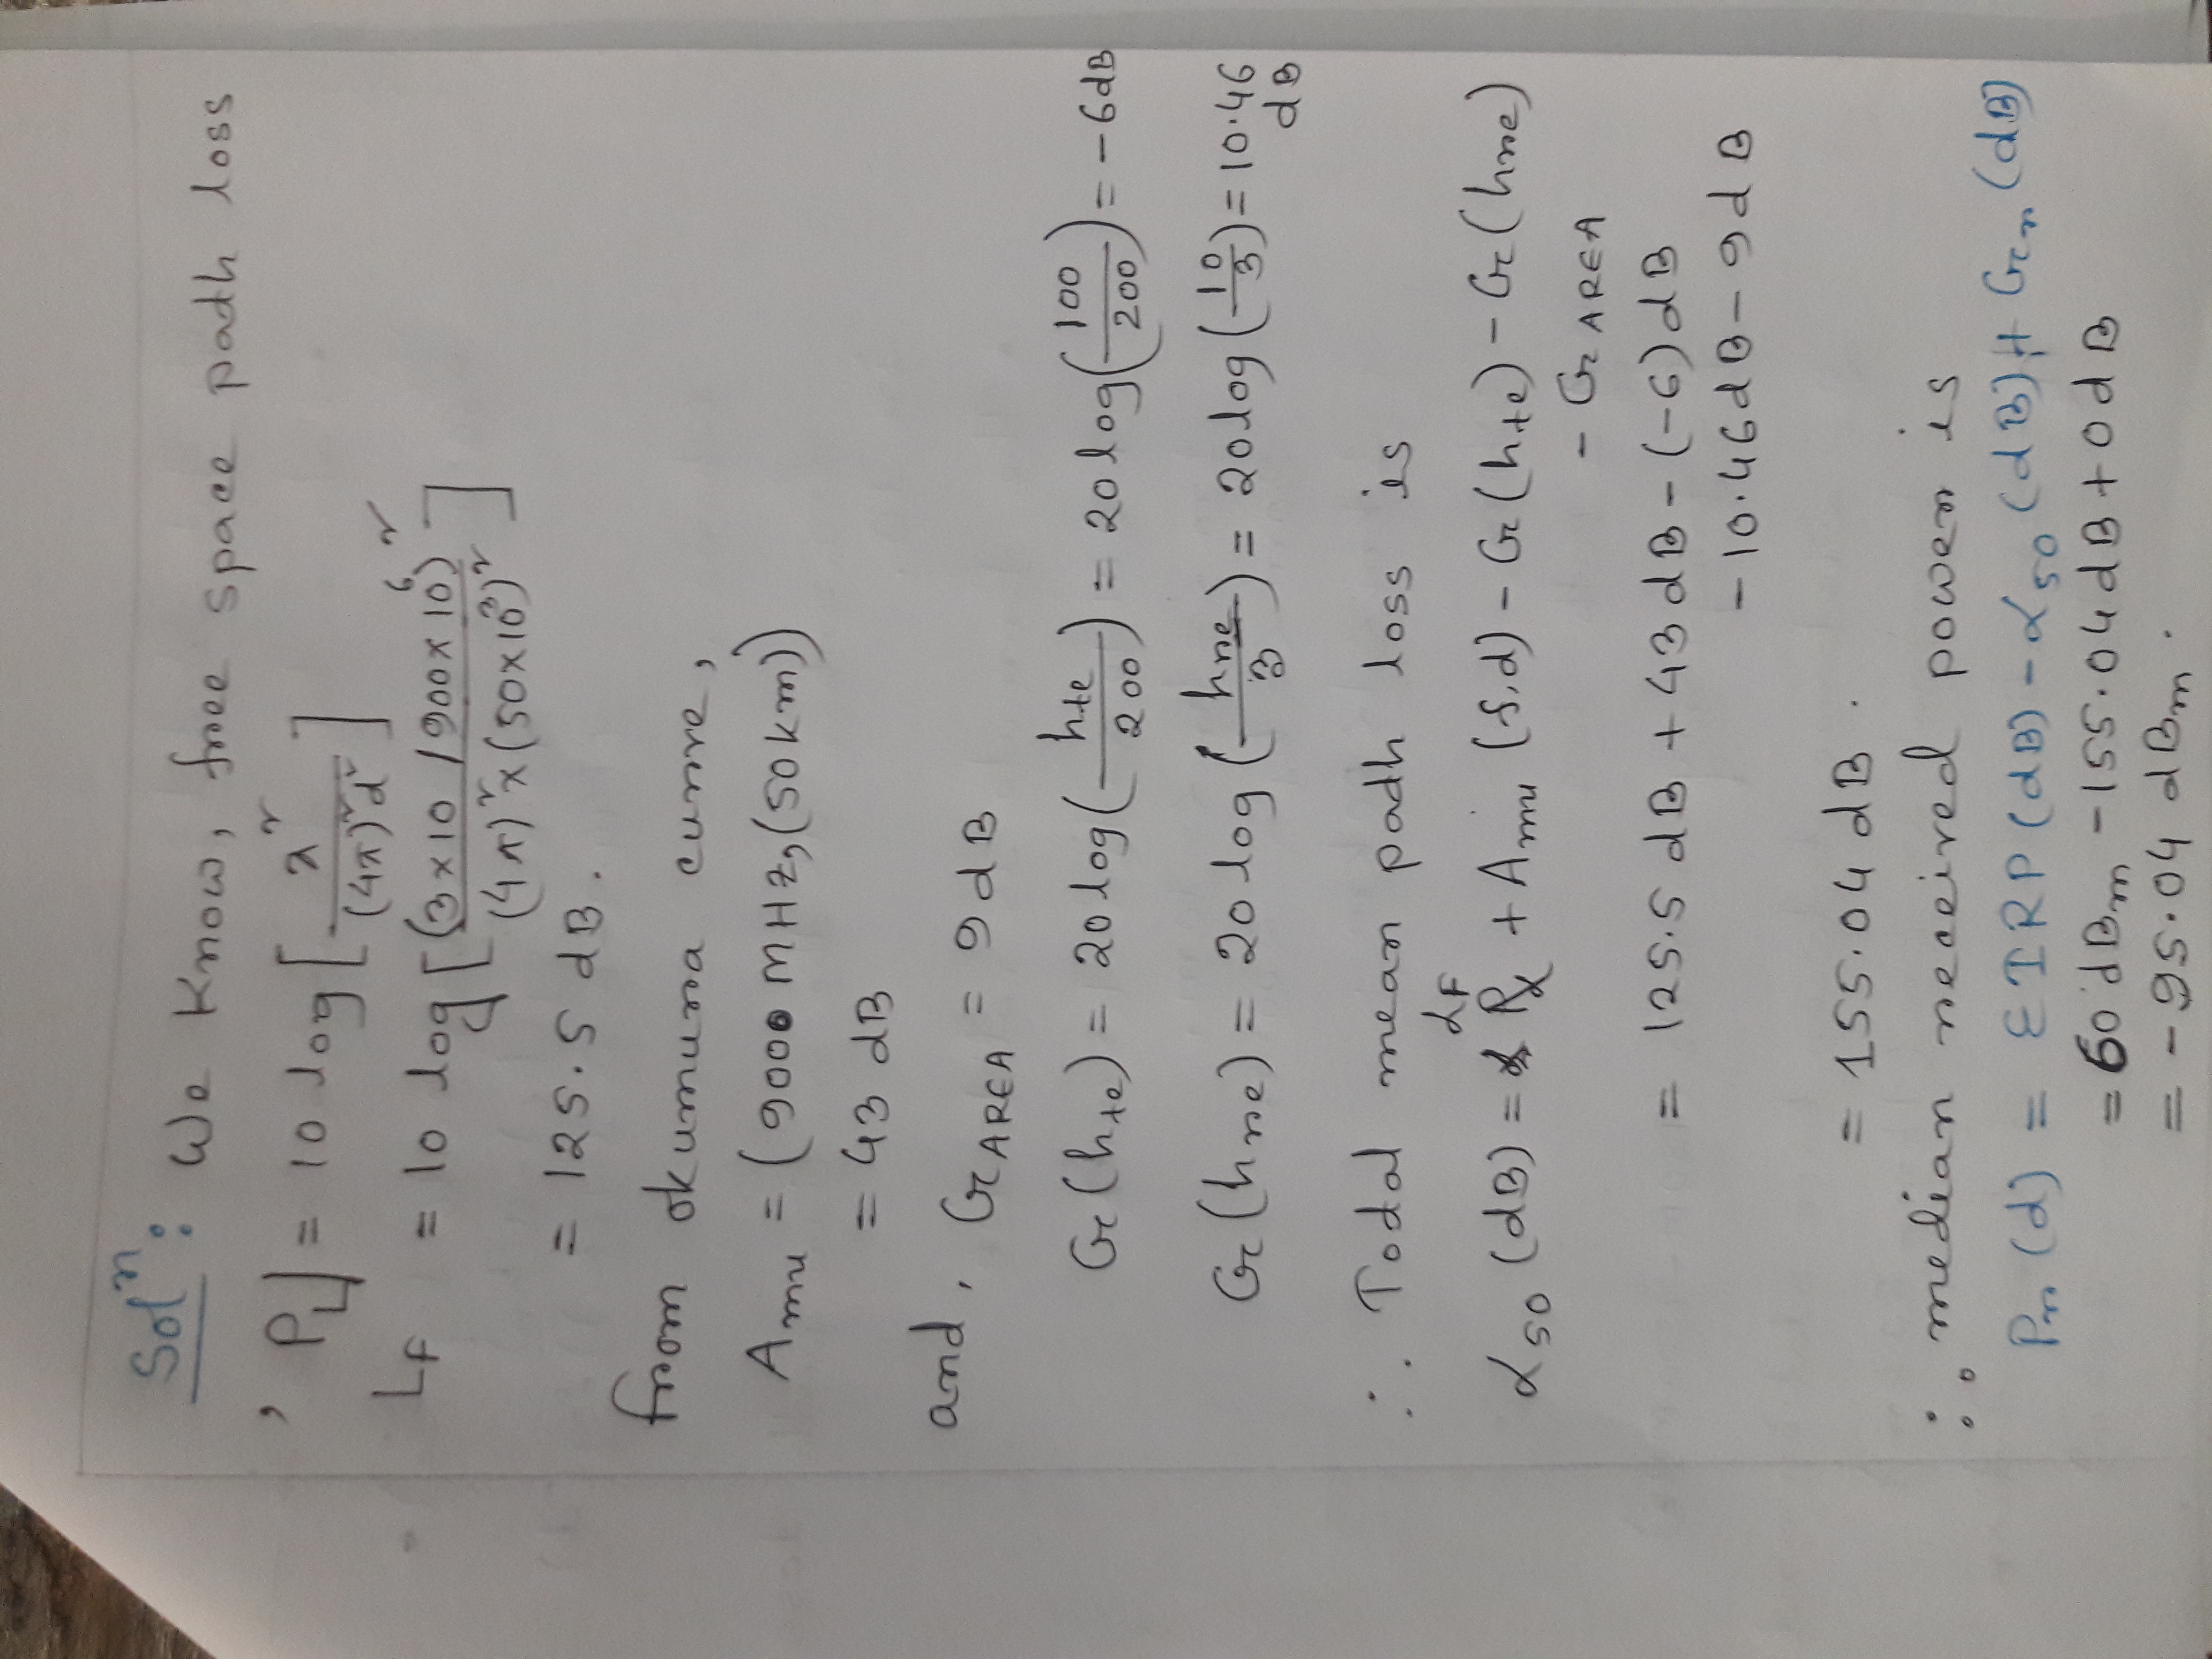 Solⁿ: We know, free space path loss
, PL] = 10 log [ λ² / (4π)²d² ]
LF = 10 log [ (3×10 / 900×10⁶)² / (4π)²×(50×10³)² ]
= 125.5 dB.
from okumura curve,
Amu = (9000 MHz,(50km))
= 43 dB
and, GAREA = 9dB
G(hte) = 20 log( hte / 200 ) = 20 log( 100 / 200 ) = -6dB
G(hre) = 20 log ( hre / 3 ) = 20 log ( 10 / 3 ) = 10.46
dB
∴ Total mean path loss is
LF
L50 (dB) = PL + Amu (f,d) - G(hte) - G(hre)
- GAREA
= 125.5 dB + 43 dB - (-6) dB
- 10.46dB - 9dB
= 155.04 dB.
∴ median received power is
Pr (d) = EIRP (dB) - L50 (dB) + Gr (dB)
= 60 dBm - 155.04 dB + 0 dB
= -95.04 dBm.